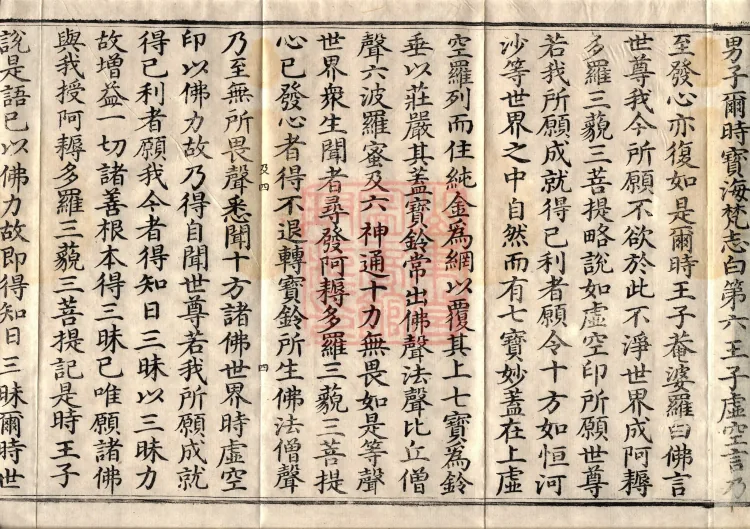 男子爾時寶海梵志白第六王子虛空言乃
至發心亦復如是爾時王子菴婆羅白佛言
世尊我今所願不欲於此不淨世界成阿耨
多羅三藐三菩提略說如虛空印所願世尊
若我所願成就得已利者願令十方如恒河
沙等世界之中自然而有七寶妙蓋在上虛
空羅列而住純金為網以覆其上七寶為鈴
垂以莊嚴其蓋寶鈴常出佛聲法聲比丘僧
聲六波羅蜜及六神通十力無畏如是等聲
世界衆生聞者尋發阿耨多羅三藐三菩提
心已發心者得不退轉寶鈴所生佛法僧聲
及四 四
乃至無所畏聲悉聞十方諸佛世界時虛空
印以佛力故乃得自聞世尊若我所願成就
得已利者願我今者得知日三昧以三昧力
故增益一切諸善根本得三昧已唯願諸佛
與我授阿耨多羅三藐三菩提記是時王子
說是語已以佛力故即得知日三昧爾時世